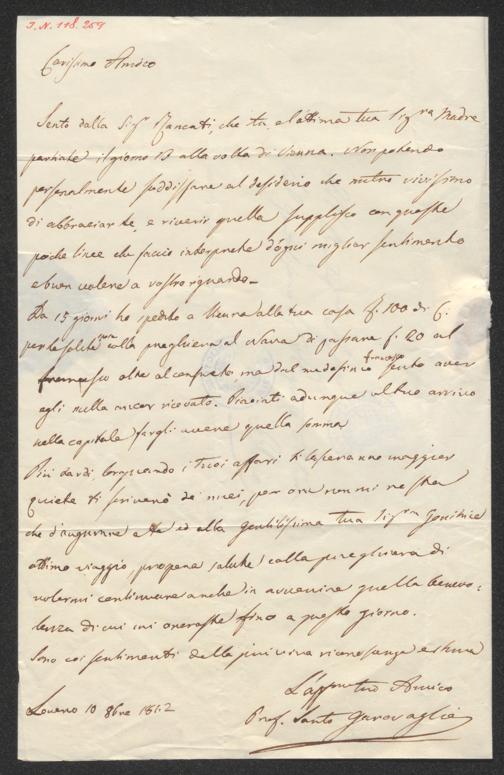 I.N. 118.259
Carissimo Amico
Sento dalla Sigra che tu, e l'ottima tua Sigra Madre
partiate il giorno 13 alla volta di Vienna. Non potendo
personalmente soddisfare al desiderio che nutro vivissimo
di abbracciar te, e riverir quella supplisco con queste
poche linee che faccio interprete d'ogni miglior sentimento
e buon volere a vostro riguardo.
Da 15 giorni ho spedito a Vienna alla tua casa f. 100 di C.
per le solite colla preghiera al Nava di passare f. 20 al
francesco oltre al consueto ma dal medesimo francesco sento aver
egli nulla ancor ricevuto. Piacciati adunque al tuo arrivo
nella capitale fargli avere quella somma
Più tardi, i tuoi affari ti lasceranno maggior
quiete ti scriverò de' miei, per ora non mi resta
che d'augurare a te ed alla gentilissima tua Sigra Genitrice
ottimo viaggio, prospera salute colla preghiera di
volermi continuare anche in avvenire quella benevo-
lenza di cui mi onoraste fino a questo giorno.
Sono coi sentimenti della più viva riconoscenza e stima
L'affmo tuo Amico
Prof. Santo Garovaglio
Loveno 10 8bre 1862